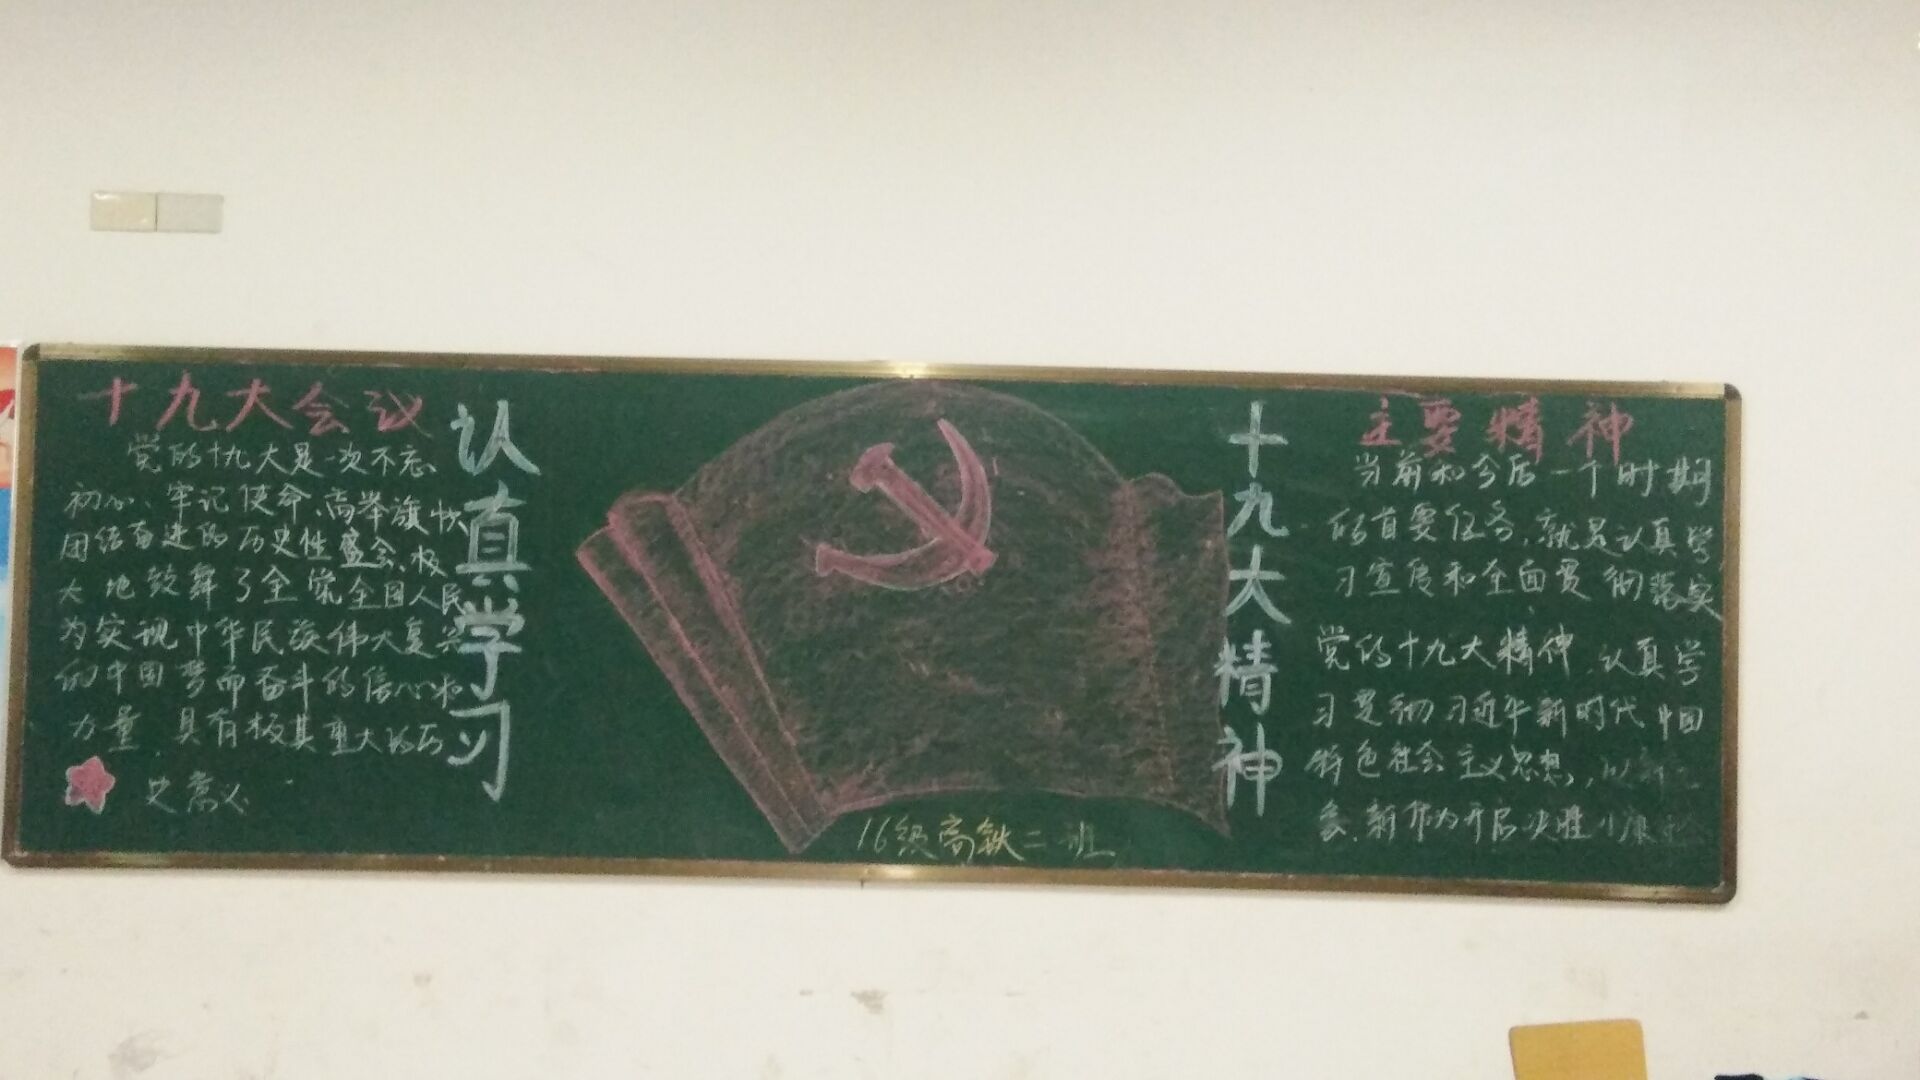 十九大会议
党的十九大是一次不忘
初心、牢记使命、高举旗帜
团结奋进的历史性盛会、极
大地鼓舞了全党全国人民
为实现中华民族伟大复兴
的中国梦而奋斗的信心和
力量，具有极其重大的历
史意义
认真学习
16级高铁二班
十九大精神
主要精神
当前和今后一个时期
的首要任务，就是认真学
习宣传和全面贯彻落实
党的十九大精神，认真学
习贯彻习近平新时代中国
特色社会主义思想，以新
象、新作为开启决胜小康